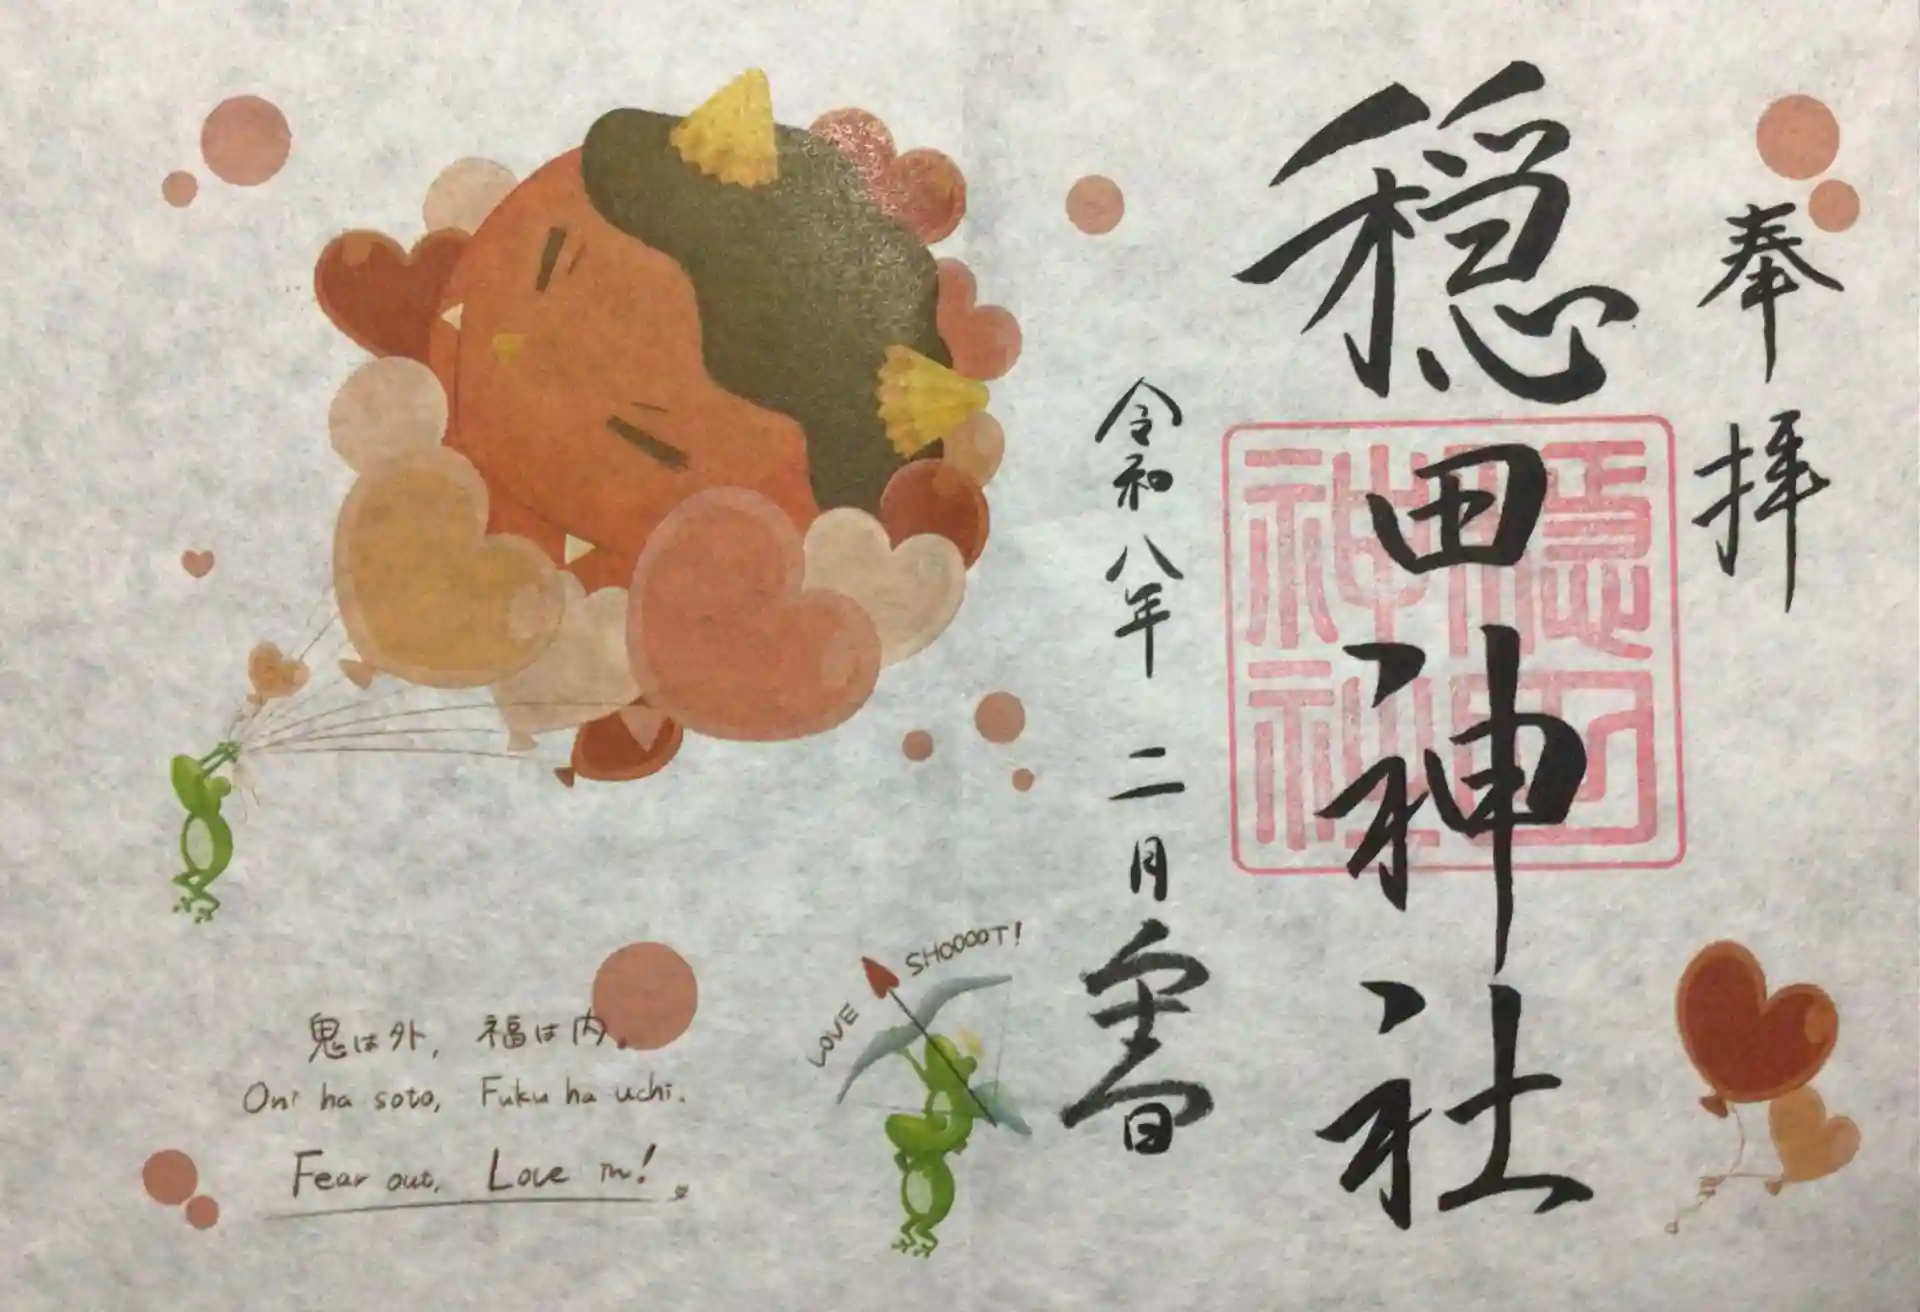 奉拝
穏田神社
穏田
神社
令和八年 二月 立春
SHOOOOT!
LOVE
鬼は外, 福は内。
Oni ha soto, Fuku ha uchi.
Fear out, Love in!